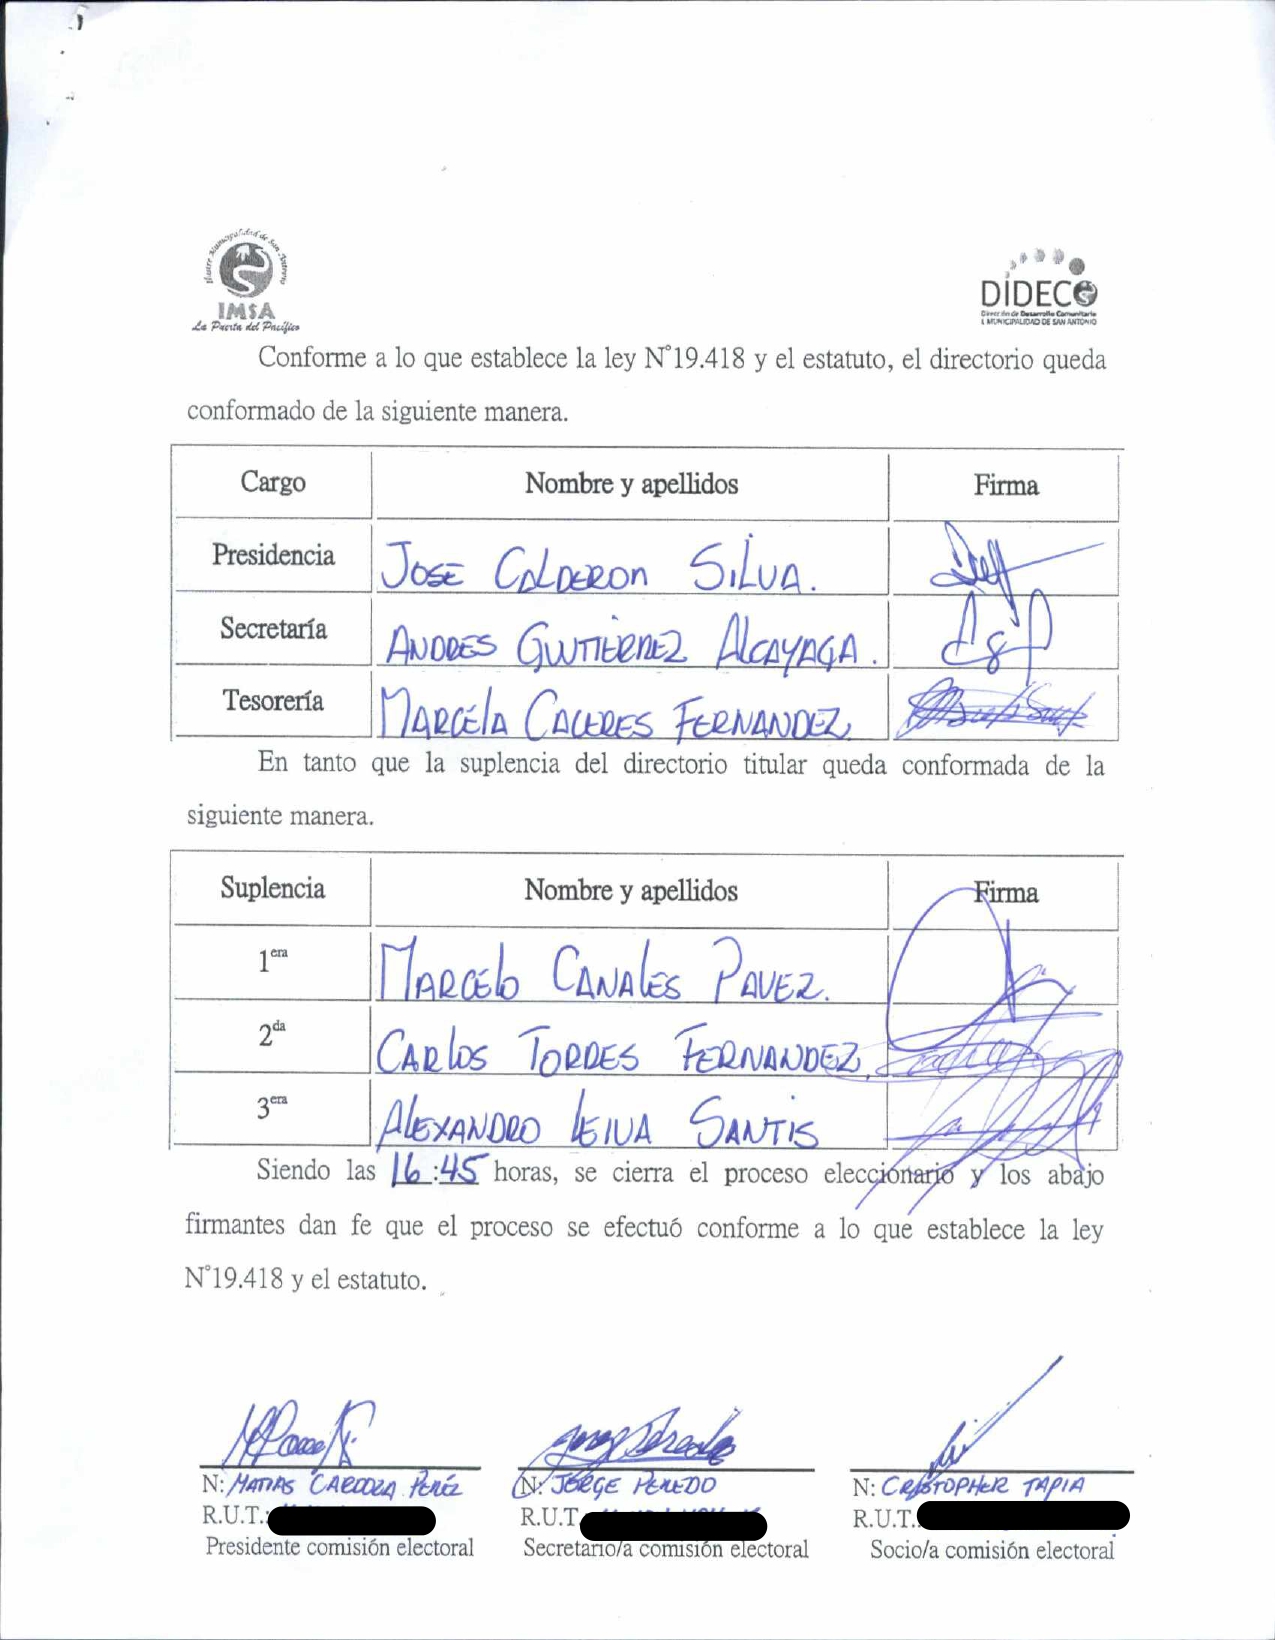 Ilustre Municipalidad de San Antonio
IMSA
La Puerta del Pacífico
DIDECO
Dirección de Desarrollo Comunitario
I. MUNICIPALIDAD DE SAN ANTONIO
Conforme a lo que establece la ley N°19.418 y el estatuto, el directorio queda
conformado de la siguiente manera.
Cargo Nombre y apellidos Firma
Presidencia JOSE CALDERON SILVA.
Secretaría ANDRES GUTIERREZ ALCAYAGA.
Tesorería MARCELA CACERES FERNANDEZ
En tanto que la suplencia del directorio titular queda conformada de la
siguiente manera.
Suplencia Nombre y apellidos Firma
1era MARCELO CANALES PAVEZ.
2da CARLOS TORRES FERNANDEZ.
3era ALEXANDRO LEIVA SANTIS
Siendo las 16:45 horas, se cierra el proceso eleccionario y los abajo
firmantes dan fe que el proceso se efectuó conforme a lo que establece la ley
N°19.418 y el estatuto.
N: MATIAS CARDOZA PEREZ N: JORGE PEREDO N: CRISTOPHER TAPIA
R.U.T.: R.U.T. R.U.T.:
Presidente comisión electoral Secretario/a comisión electoral Socio/a comisión electoral